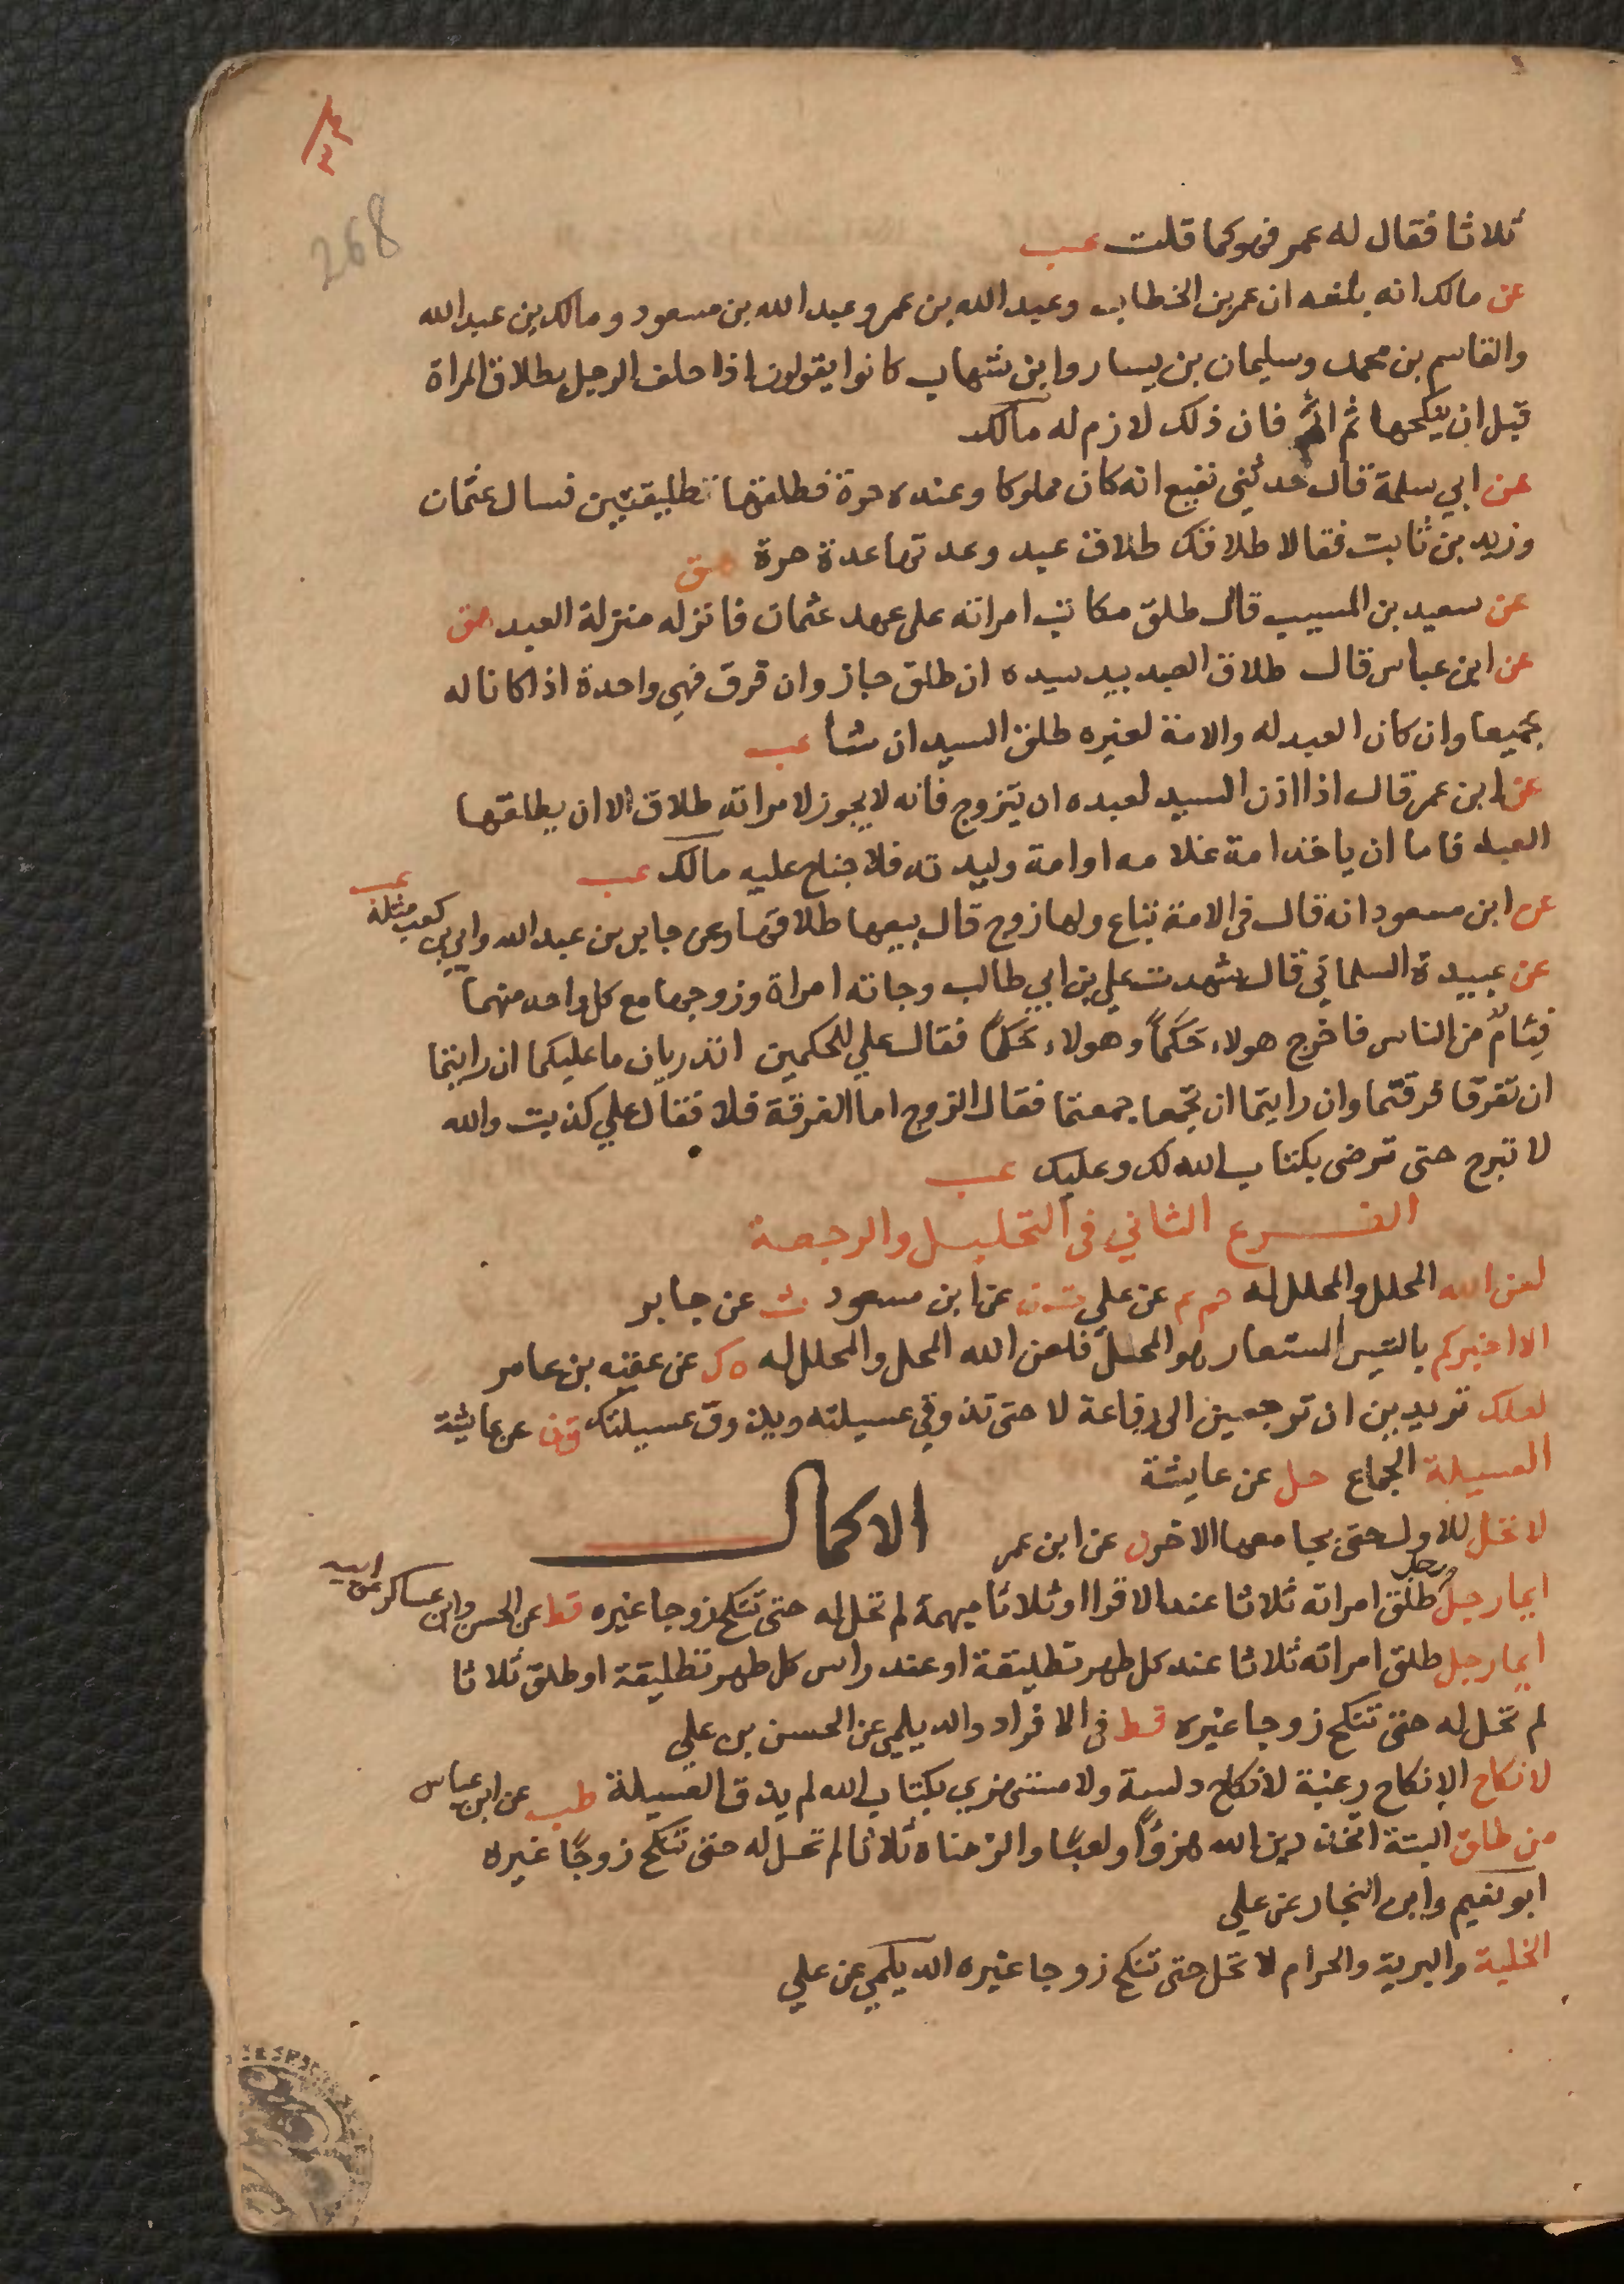 268
ثلاثا فقال له عمر فهو كما قلت عب
عن مالك انه بلغه ان عمر بن الخطاب وعبد الله بن عمر وعبد الله بن مسعود ومالك بن عبد الله
والقاسم بن محمد وسليمان بن يسار وابن شهاب كانوا يقولون اذا حلف الرجل بطلاق المراة
قبل ان ينكحها ثم اثم فان ذلك لازم له مالك
عن ابي سلمة قال حدثني نفيع انه كان مملوكا وعنده حرة فطلقها تطليقتين فسال عثمان
وزيد بن ثابت فقالا طلاقك طلاق عبد وعدتها عدة حرة هق
عن سعيد بن المسيب قال طلق مكاتب امراته على عهد عثمان فانزله منزلة العبد هق
عن ابن عباس قال طلاق العبد بيد سيده ان طلق جاز وان فرق فهي واحدة اذا كانا له
جميعا وان كان العبد له والامة لغيره طلق السيد ان شا عب
عن ابن عمر قال اذا اذن السيد لعبده ان يتزوج فانه لا يجوز لامراته طلاق الا ان يطلقها
العبد فاما ان ياخذ امة غلامه او امة وليدته فلا جناح عليه مالك عب
عن ابن مسعود انه قال في الامة تباع ولها زوج قال بيعها طلاقها وعن جابر بن عبد الله وابي بن كعب مثله عب
عن عبيدة السلماني قال شهدت علي بن ابي طالب وجاته امراة وزوجها مع كل واحد منهما
فئام من الناس فاخرج هولاء حكما وهولاء حكما فقال علي للحكمين اتدريان ما عليكما ان رايتما
ان تفرقا فرقتما وان رايتما ان تجمعا جمعتما فقال الزوج اما الفرقة فلا فقال علي كذبت والله
لا تبرح حتى ترضى بكتاب الله لك وعليك عب
الفرع الثاني في التحليل والرجعة
لعن الله المحلل والمحلل له حم عم عن علي ت ن عن ابن مسعود ت عن جابر
الا اخبركم بالتيس المستعار هو المحل فلعن الله المحل والمحلل له ه ك عن عقبه بن عامر
لعلك تريدين ان ترجعين الى رفاعة لا حتى تذوقي عسيلته ويذوق عسيلتك ق ن عن عايشة
العسيلة الجماع حل عن عايشة
الاكمال
لا تحل للاول حتى يجامعها الاخر ن عن ابن عمر
ايما رجل طلق امراته ثلاثا عند الاقرا او ثلاثا مبهمة لم تحل له حتى تنكح زوجا غيره قط عن الحسن وابن عساكر عن ابيه
ايما رجل طلق امراته ثلاثا عند كل طهر تطليقة او عند راس كل طهر تطليقة او طلق ثلاثا
لم تحل له حتى تنكح زوجا غيره قط في الافراد والديلمي عن الحسن بن علي
لا نكاح الا نكاح رغبة لا نكاح دلسة ولا مستهزي بكتاب الله لم يذق العسيلة طب عن ابن عباس
من طلق البتة اتخذ دين الله هزوًا ولعبًا والزمناه ثلاثا لم تحل له حتى تنكح زوجًا غيره
ابو نعيم وابن النجار عن علي
الخلية والبرية والحرام لا تحل حتى تنكح زوجا غيره الديلمي عن علي